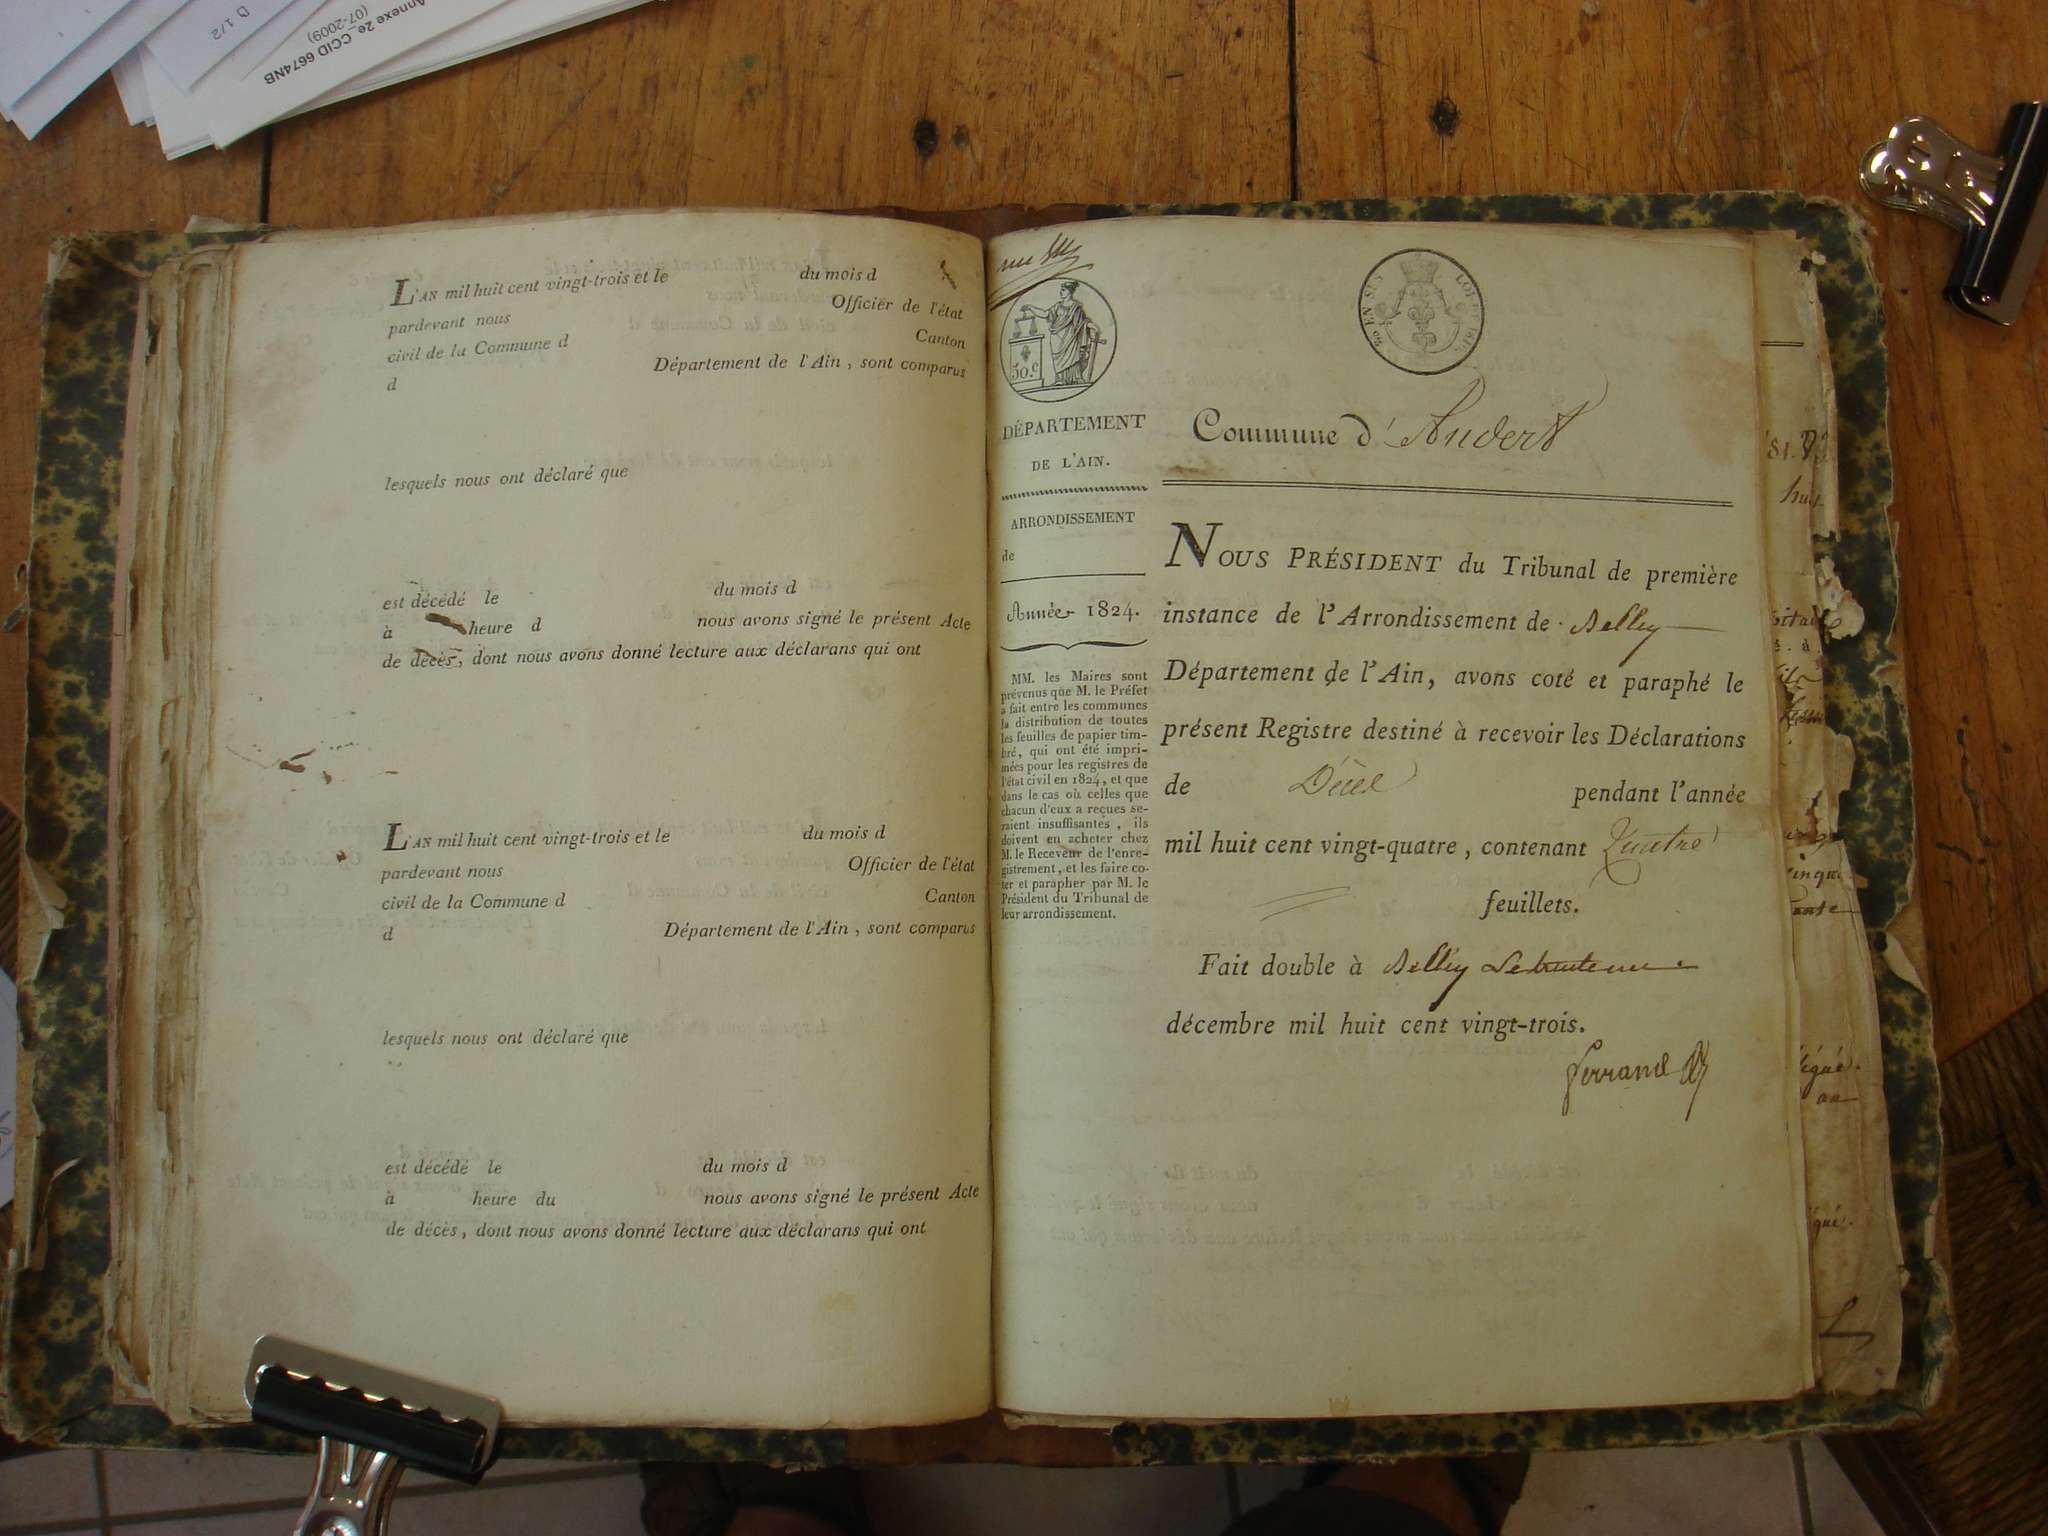 Annexe 2e_CCID 6674NB
(07-2009)
D 1/2
L'AN mil huit cent vingt-trois et le du mois d
pardevant nous Officier de l'état
civil de la Commune d Canton
d Département de l'Ain, sont comparus
lesquels nous ont déclaré que
est décédé le du mois d
à heure d nous avons signé le présent Acte
de décès, dont nous avons donné lecture aux déclarans qui ont
L'AN mil huit cent vingt-trois et le du mois d
pardevant nous Officier de l'état
civil de la Commune d Canton
d Département de l'Ain, sont comparus
lesquels nous ont déclaré que
est décédé le du mois d
à heure du nous avons signé le présent Acte
de décès, dont nous avons donné lecture aux déclarans qui ont
50.c
DÉPARTEMENT
DE L'AIN.
ARRONDISSEMENT
de
Année 1824.
MM. les Maires sont
prévenus que M. le Préfet
a fait entre les communes
la distribution de toutes
les feuilles de papier tim-
bré, qui ont été impri-
mées pour les registres de
l'état civil en 1824, et que
dans le cas où celles que
chacun d'eux a reçues se-
raient insuffisantes, ils
doivent en acheter chez
M. le Receveur de l'enre-
gistrement, et les faire co-
ter et parapher par M. le
Président du Tribunal de
leur arrondissement.
Commune d'Andert
NOUS PRÉSIDENT du Tribunal de première
instance de l'Arrondissement de Belley
Département de l'Ain, avons coté et paraphé le
présent Registre destiné à recevoir les Déclarations
de Décès pendant l'année
mil huit cent vingt-quatre, contenant Quatre
feuillets.
Fait double à Belley Le
décembre mil huit cent vingt-trois.
Ferrand